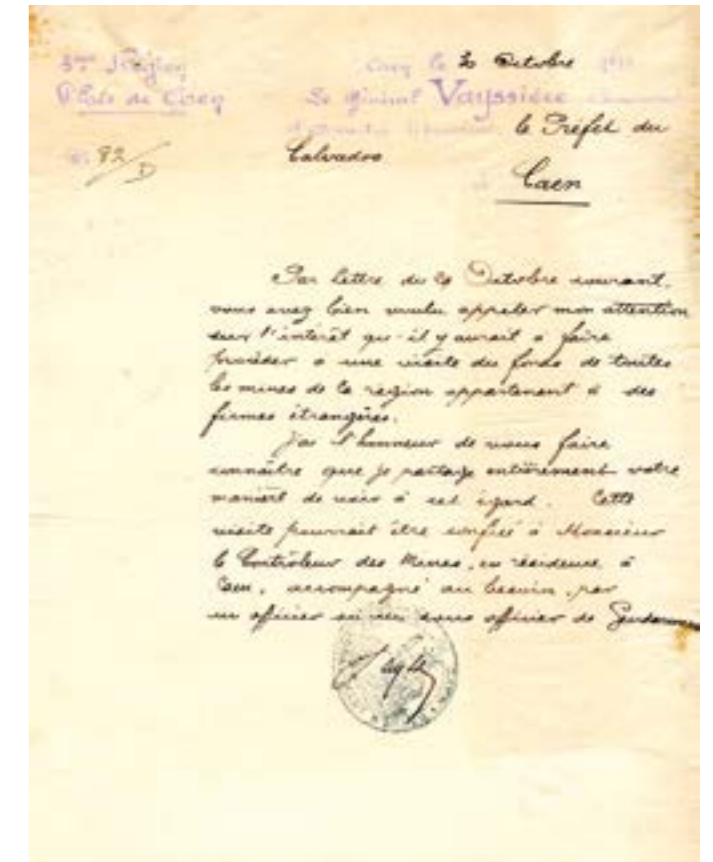 3me Région
Place de Caen
Caen le 20 Octobre
Le Général Vayssière
le Préfet du
Calvados
Caen
92/D
Par lettre du Octobre courant,
vous avez bien voulu appeler mon attention
sur l'intérêt qu'il y aurait à faire
procéder à une visite du fonds de toutes
les mines de la région appartenant à des
firmes étrangères.
J'ai l'honneur de vous faire
connaître que je partage entièrement votre
manière de voir à cet égard. Cette
visite pourrait être confiée à Monsieur
le Contrôleur des Mines, en résidence à
Caen, accompagné au besoin, par
un officier ou un sous officier de Gendarmerie